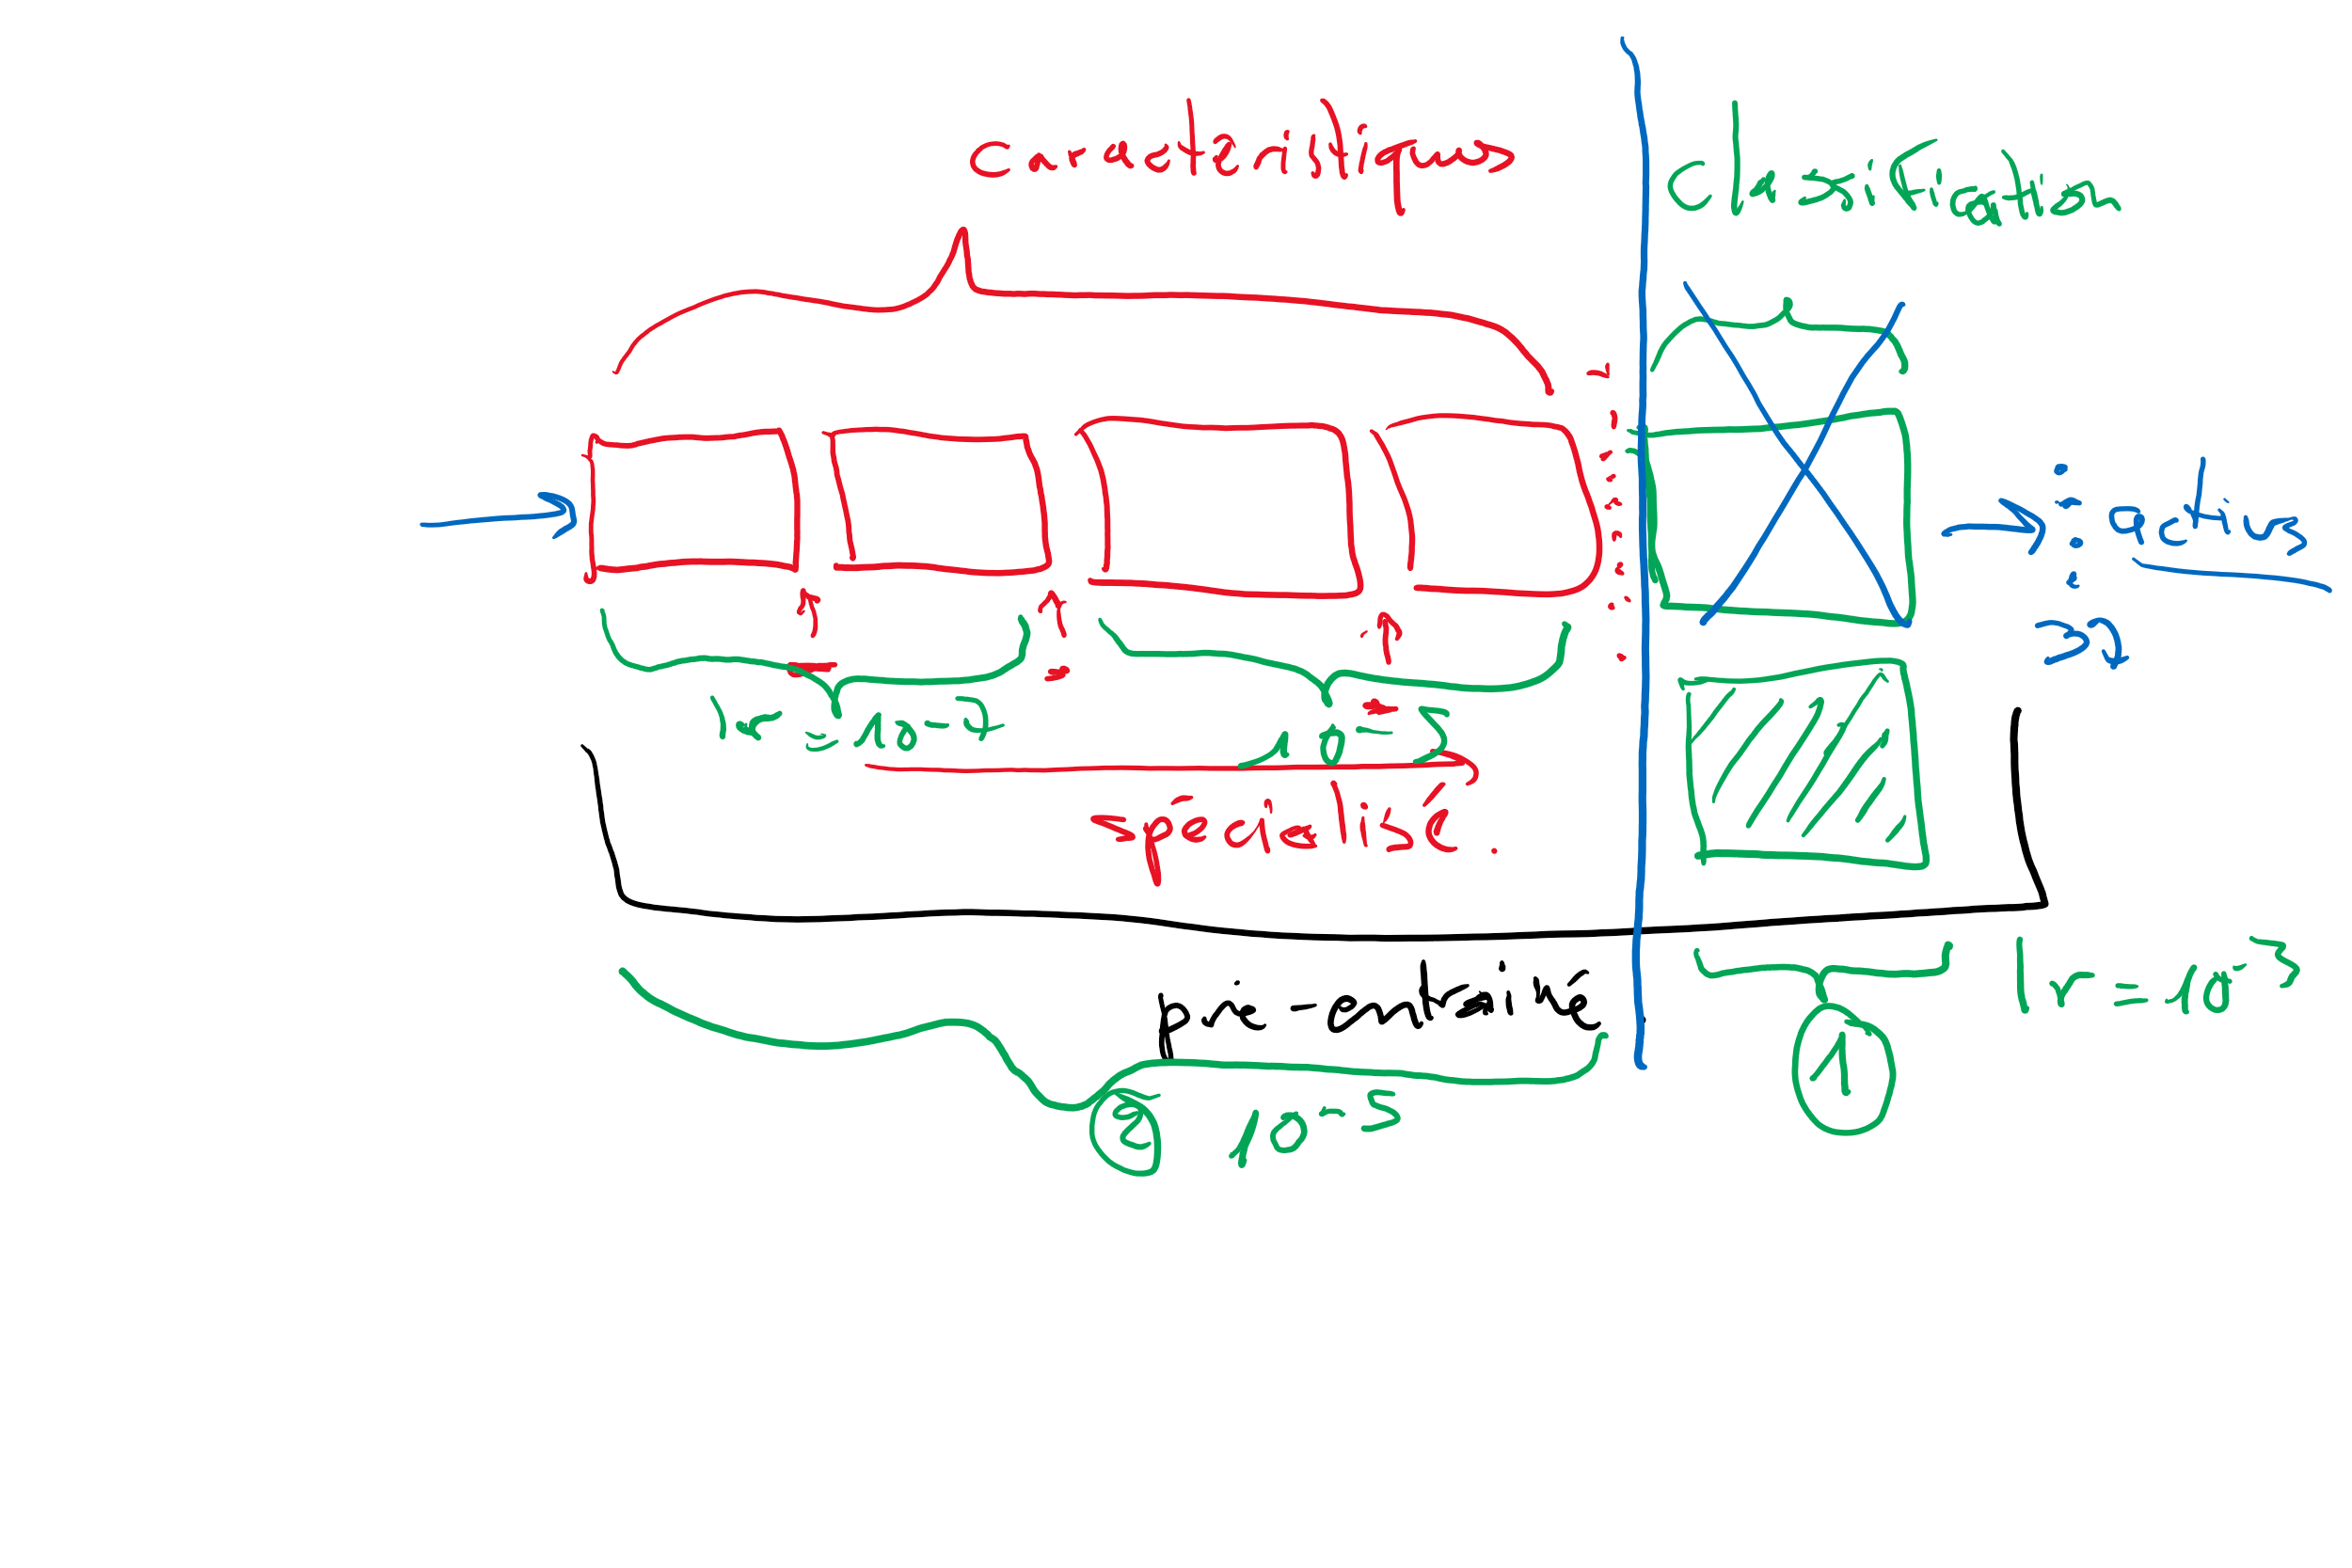 caractéristiques
classification
lr = 10-7
10-5
spécialisé.
pré-entraîné
lr = 10-3
1
2
10-5